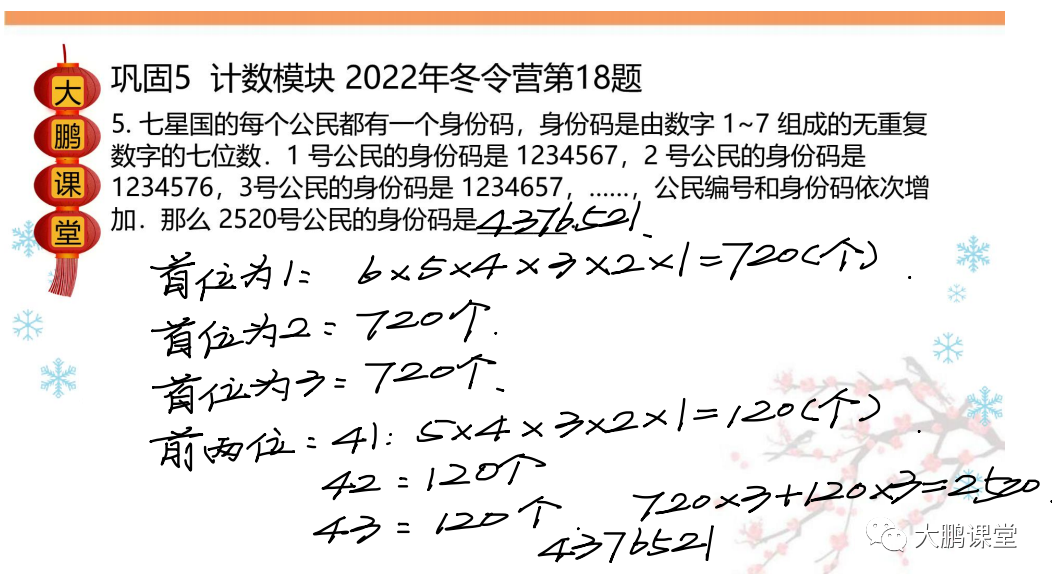 大鹏课堂
巩固5 计数模块 2022年冬令营第18题
5. 七星国的每个公民都有一个身份码，身份码是由数字 1~7 组成的无重复
数字的七位数．1 号公民的身份码是 1234567，2 号公民的身份码是
1234576，3号公民的身份码是 1234657，……，公民编号和身份码依次增
加．那么 2520号公民的身份码是4376521.
首位为1: 6×5×4×3×2×1=720(个).
首位为2: 720个.
首位为3: 720个.
前两位: 41: 5×4×3×2×1=120(个).
42: 120个
43: 120个. 720×3+120×3=2520.
4376521
大鹏课堂